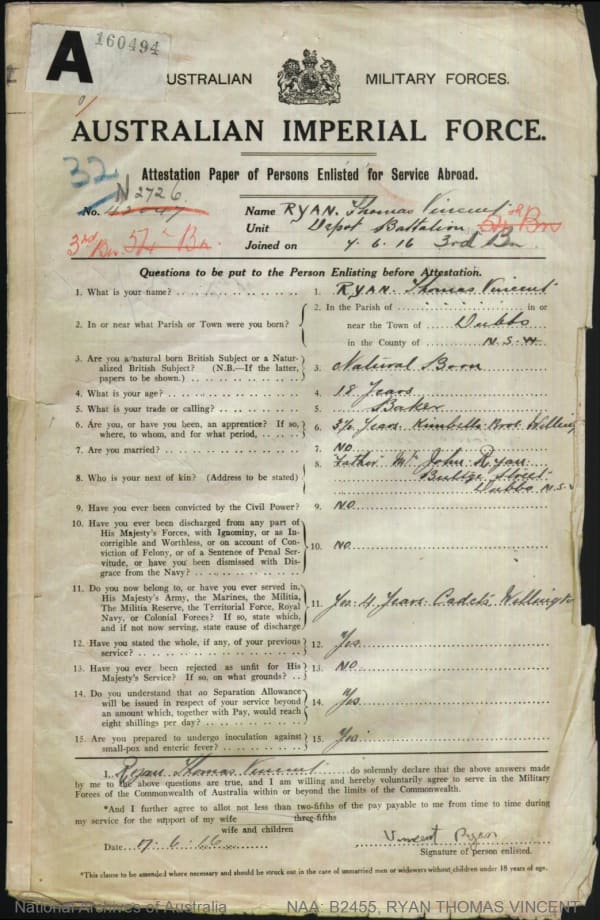 A
160494
AUSTRALIAN MILITARY FORCES.
AUSTRALIAN IMPERIAL FORCE.
Attestation Paper of Persons Enlisted for Service Abroad.
32
N2726
No.
Name RYAN. Thomas Vincent
3rd Bn. 54th Bn
Unit Depot Battalion
Joined on 7.6.16 3rd Bn
Questions to be put to the Person Enlisting before Attestation.
1. What is your name? 1. RYAN. Thomas Vincent
2. In or near what Parish or Town were you born? 2. In the Parish of in or
near the Town of Dubbo
in the County of N.S.W
3. Are you a natural born British Subject or a Natur-
alized British Subject? (N.B.—If the latter,
papers to be shown.) 3. Natural Born
4. What is your age? 4. 18 Years
5. What is your trade or calling? 5. Baker
6. Are you, or have you been, an apprentice? If so,
where, to whom, and for what period, 6. 3½ Years. Bros.
7. Are you married? 7. NO
8. Who is your next of kin? (Address to be stated) 8. Father Mr John Ryan
Street
Dubbo N.S.
9. Have you ever been convicted by the Civil Power? 9. NO
10. Have you ever been discharged from any part of
His Majesty's Forces, with Ignominy, or as In-
corrigible and Worthless, or on account of Con-
viction of Felony, or of a Sentence of Penal Ser-
vitude, or have you been dismissed with Dis-
grace from the Navy? 10. NO
11. Do you now belong to, or have you ever served in,
His Majesty's Army, the Marines, the Militia,
The Militia Reserve, the Territorial Force, Royal
Navy, or Colonial Forces? If so, state which,
and if not now serving, state cause of discharge 11. Yes. 4 Years. Cadets. Wellington
12. Have you stated the whole, if any, of your previous
service? 12. Yes
13. Have you ever been rejected as unfit for His
Majesty's Service? If so, on what grounds? 13. NO
14. Do you understand that no Separation Allowance
will be issued in respect of your service beyond
an amount which, together with Pay, would reach
eight shillings per day? 14. Yes
15. Are you prepared to undergo inoculation against
small-pox and enteric fever? 15. Yes
I, Ryan Thomas Vincent do solemnly declare that the above answers made
by me to the above questions are true, and I am willing and hereby voluntarily agree to serve in the Military
Forces of the Commonwealth of Australia within or beyond the limits of the Commonwealth.
*And I further agree to allot not less than two-fifths of the pay payable to me from time to time during
three-fifths
my service for the support of my wife
wife and children
Date 7.6.16 Vincent Ryan
Signature of person enlisted.
*This clause to be amended where necessary and should be struck out in the case of unmarried men or widowers without children under 18 years of age.
National Archives of Australia NAA: B2455, RYAN THOMAS VINCENT